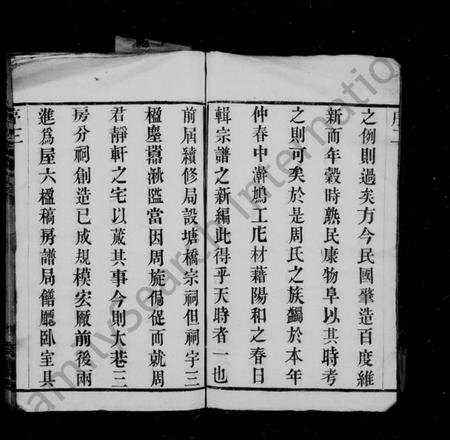 序二
之例則過矣方今民國肇造百度維
新而年穀時熟民康物阜以其時考
之則可矣於是周氏之族蠲於本年
仲春中澣鳩工庀材藉陽和之春日
輯宗譜之新編此得乎天時者一也
前屆續修局設塘橋宗祠但祠宇三
楹塵囂湫隘當因周旋侷促而就周
君靜軒之宅以蕆其事今則大巷三
房分祠創造已成規模宏厰前後兩
進爲屋六楹稿房譜局儀廳臥室具
序三
FamilySearch International